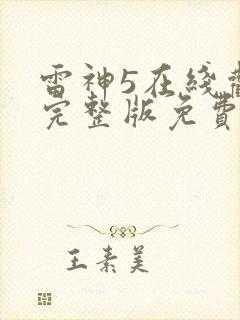 雷神5在线
完整版免費
王素美